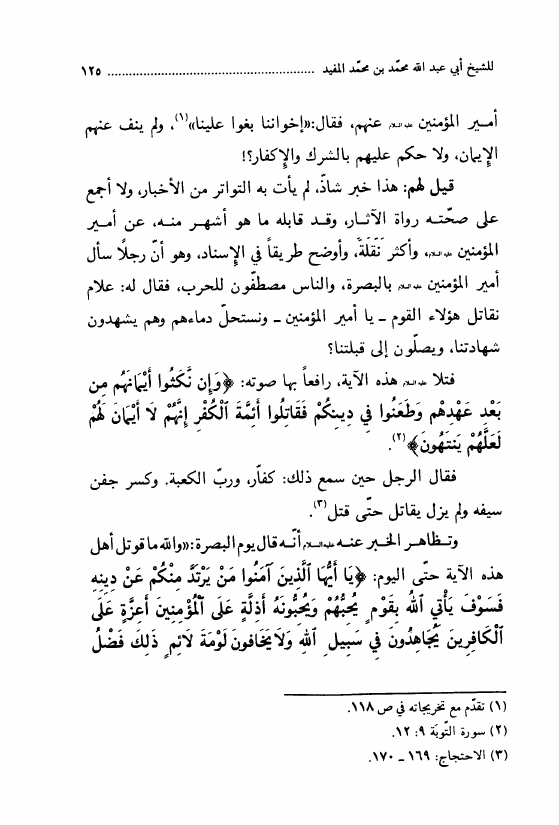 للشيخ أبي عبد الله محمّد بن محمّد المفيد ........................................................ ١٢٥
أمـير المؤمنين عليه السلام عنهم، فقال:«إخواننا بغوا علينا»(١)، ولم ينف عنهم
الإيمان، ولا حكم عليهم بالشرك والإكفار؟!
قيل لهم: هذا خبر شاذّ، لم يأت به التواتر من الأخبار، ولا أجمع
على صحّتـه رواة الآثـار، وقـد قابله ما هو أشهـر منـه، عن أمـير
المؤمنين عليه السلام، وأكثر نَقَلَةً، وأوضح طريقاً في الإسناد، وهو أنّ رجلاً سأل
أمير المؤمنين عليه السلام بالبصرة، والناس مصطفّون للحرب، فقال له: علام
نقاتل هؤلاء القوم ـ يا أمير المؤمنين ـ ونستحلّ دماءهم وهم يشهدون
شهادتنا، ويصلّون إلى قبلتنا؟
فتلا عليه السلام هذه الآية، رافعاً بها صوته: ﴿وَإِن نَّكَثُوا أَيْمَانَهُم مِن
بَعْدِ عَهْدِهِم وَطَعَنُوا فِي دِينِكُمْ فَقَاتِلُوا أَئِمَّةَ الْكُفْرِ إِنَّهُمْ لَا أَيْمَانَ لَهُمْ
لَعَلَّهُمْ يَنتَهُونَ﴾(٢).
فقال الرجل حين سمع ذلك: كفاّر، وربّ الكعبة. وكسر جفن
سيفه ولم يزل يقاتل حتّى قتل(٣).
وتـظاهـر الخـبر عنـه عليه السلام أنّـه قال يوم البصرة:«والله ما قوتل أهل
هذه الآية حتّى اليوم: ﴿يَا أَيُّهَا الَّذِينَ آمَنُوا مَنْ يَرْتَدَّ مِنْكُمْ عَنْ دِينِهِ
فَسَوْفَ يَأْتِي اللهُ بِقَوْمٍ يُحِبُّهُمْ وَيُحِبُّونَهُ أَذِلَّةٍ عَلَى الْمُؤْمِنِينَ أَعِزَّةٍ عَلَى
الْكَافِرِينَ يُجَاهِدُونَ فِي سَبِيلِ اللهِ وَلَا يَخَافُونَ لَوْمَةَ لَائِمٍ ذَلِكَ فَضْلُ
(١) تقدّم مع تخريجاته في ص ١١٨.
(٢) سورة التّوبَة ٩: ١٢.
(٣) الاحتجاج: ١٦٩ ـ ١٧٠.